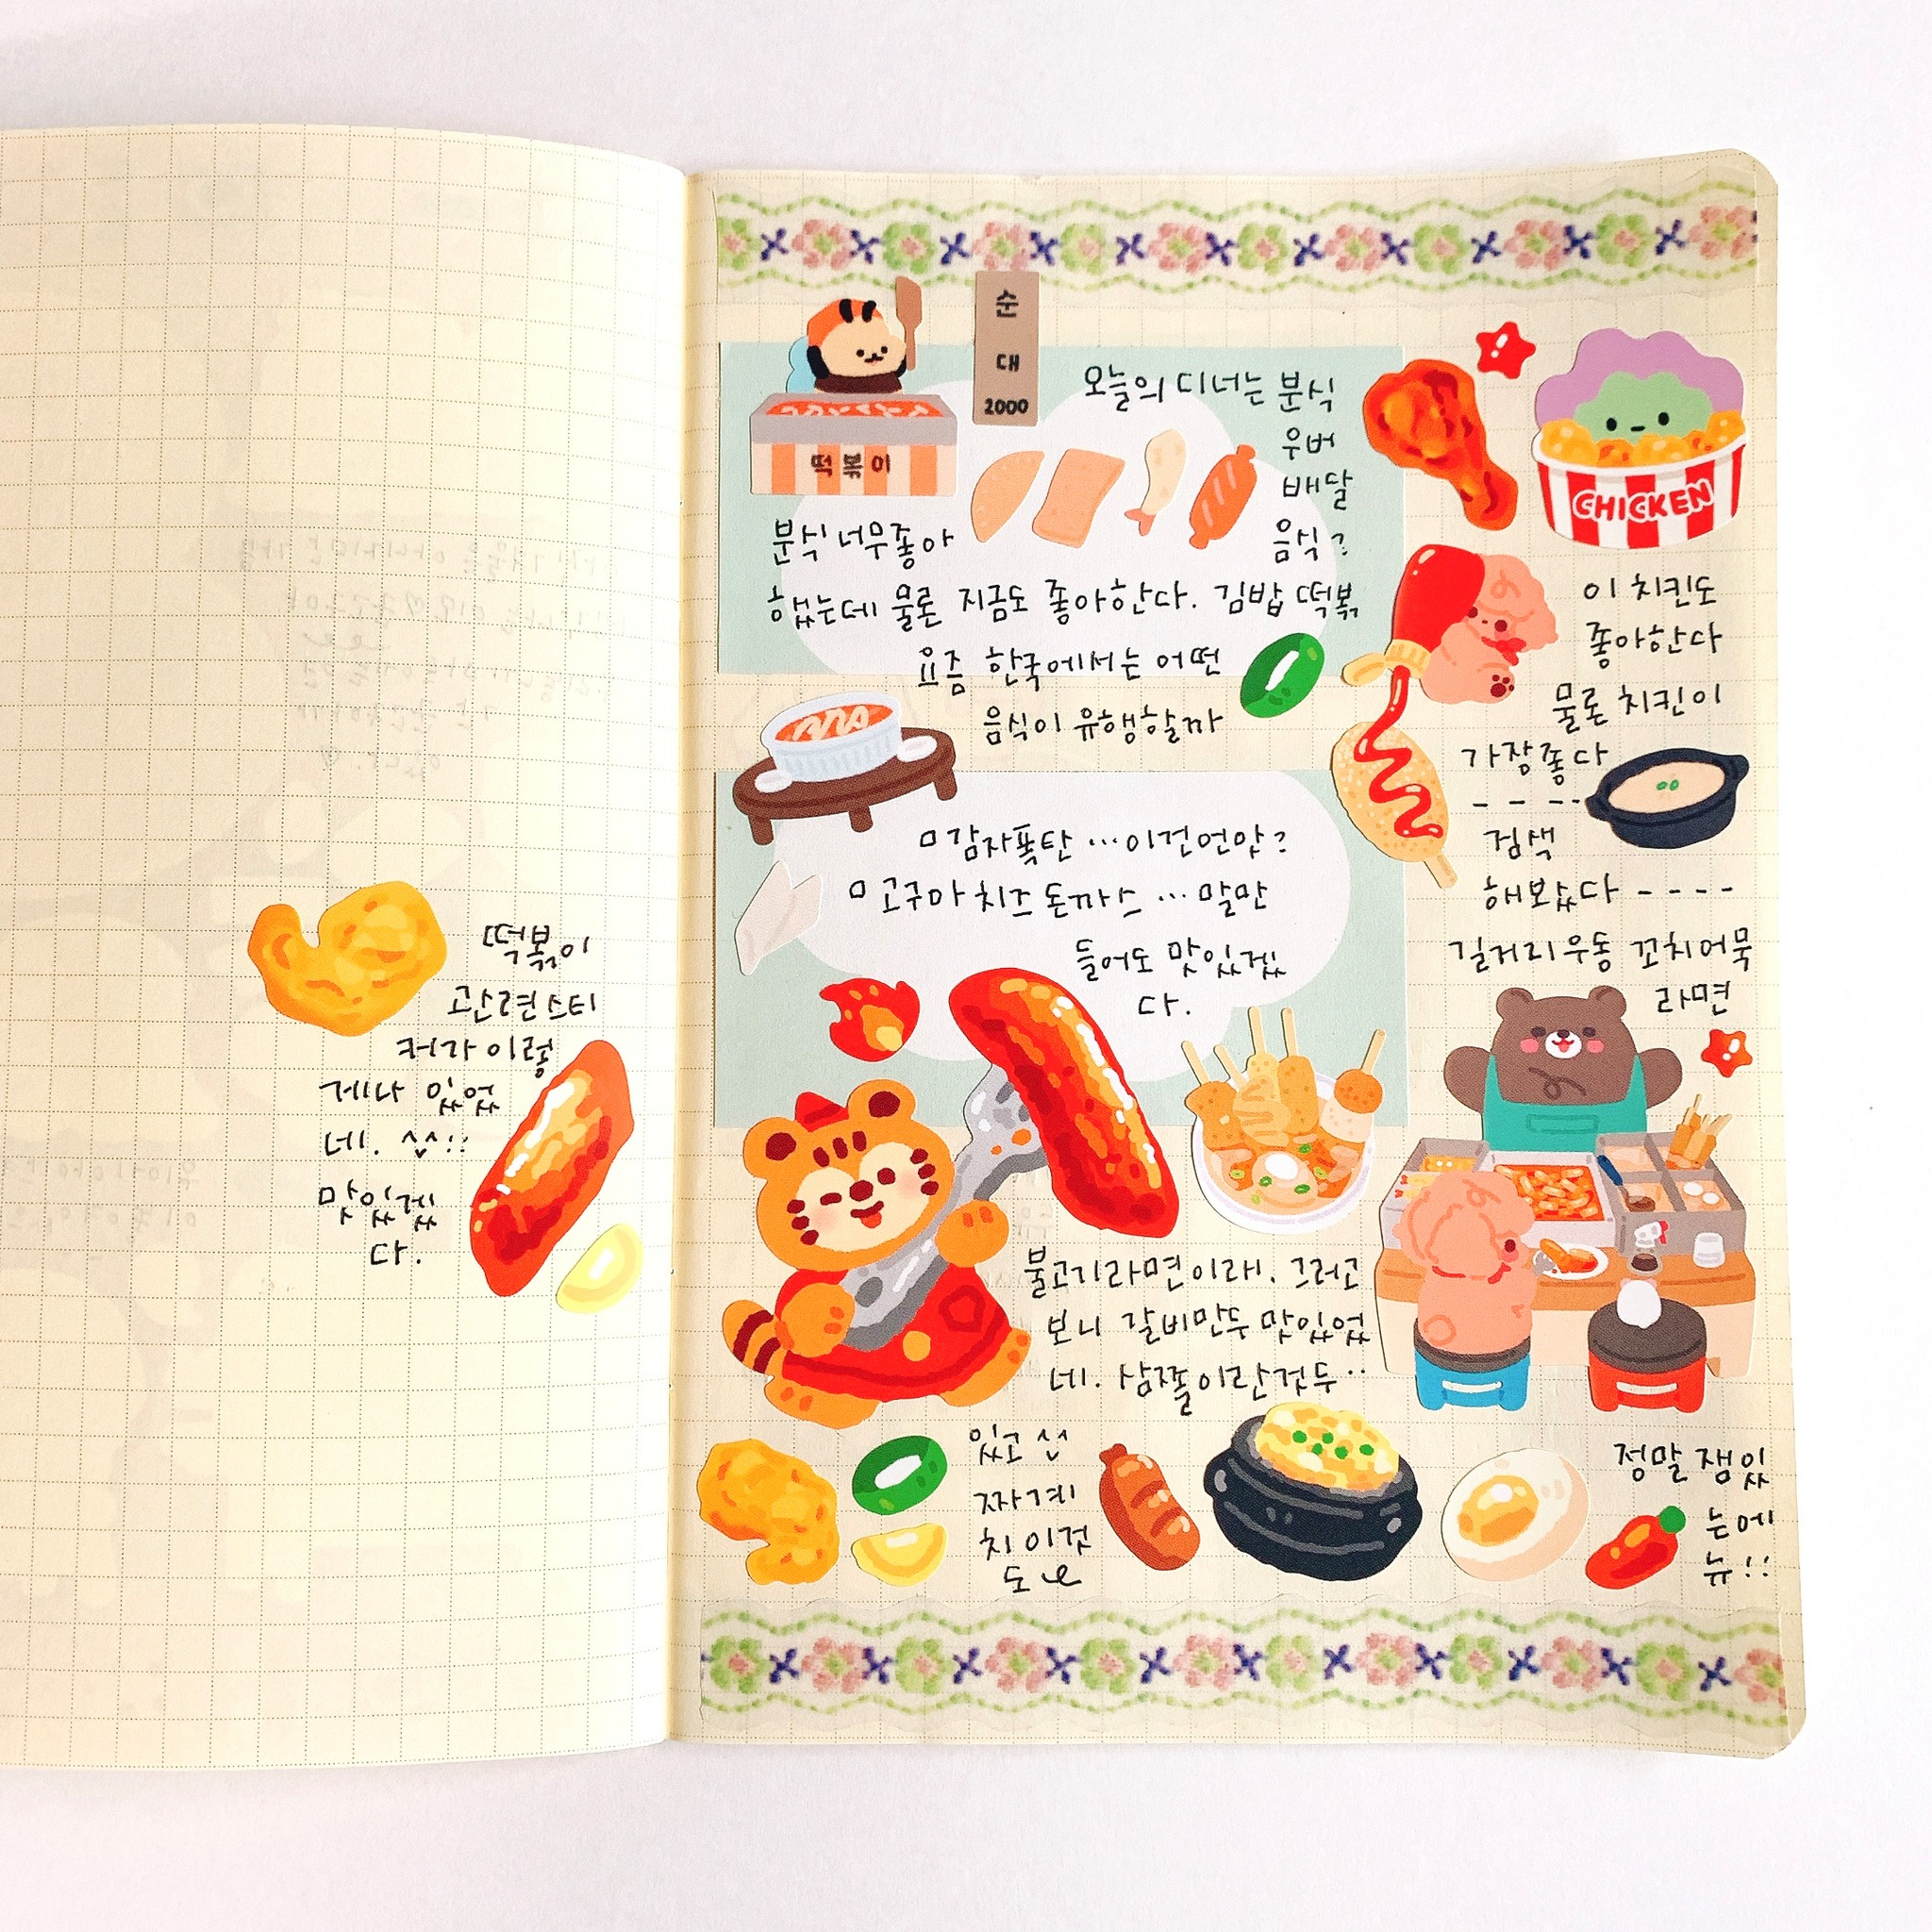 떡볶이
관련스티
커가 이렇
게나 있었
네. ^^!!
맛있겠
다.
순
대
2000
떡볶이
오늘의 디너는 분식
우버
배달
음식?
분식 너무좋아
했는데 물론 지금도 좋아한다. 김밥 떡볶
요즘 한국에서는 어떤
음식이 유행할까
ㅁ감자폭탄 …이건언앙?
ㅁ고구마 치즈 돈까스 … 말만
들어도 맛있겠
다.
CHICKEN
이 치킨도
좋아한다
물론 치킨이
가장좋다
- - - -
검색
해보았다 - - - -
길거리우동 꼬치어묵
라면
불고기라면이래. 그러고
보니 갈비만두 맛있었
네. 삼쫄이란것두..
있고 신
짜계
치 이것
도
정말 잼있
는에
뉴!!